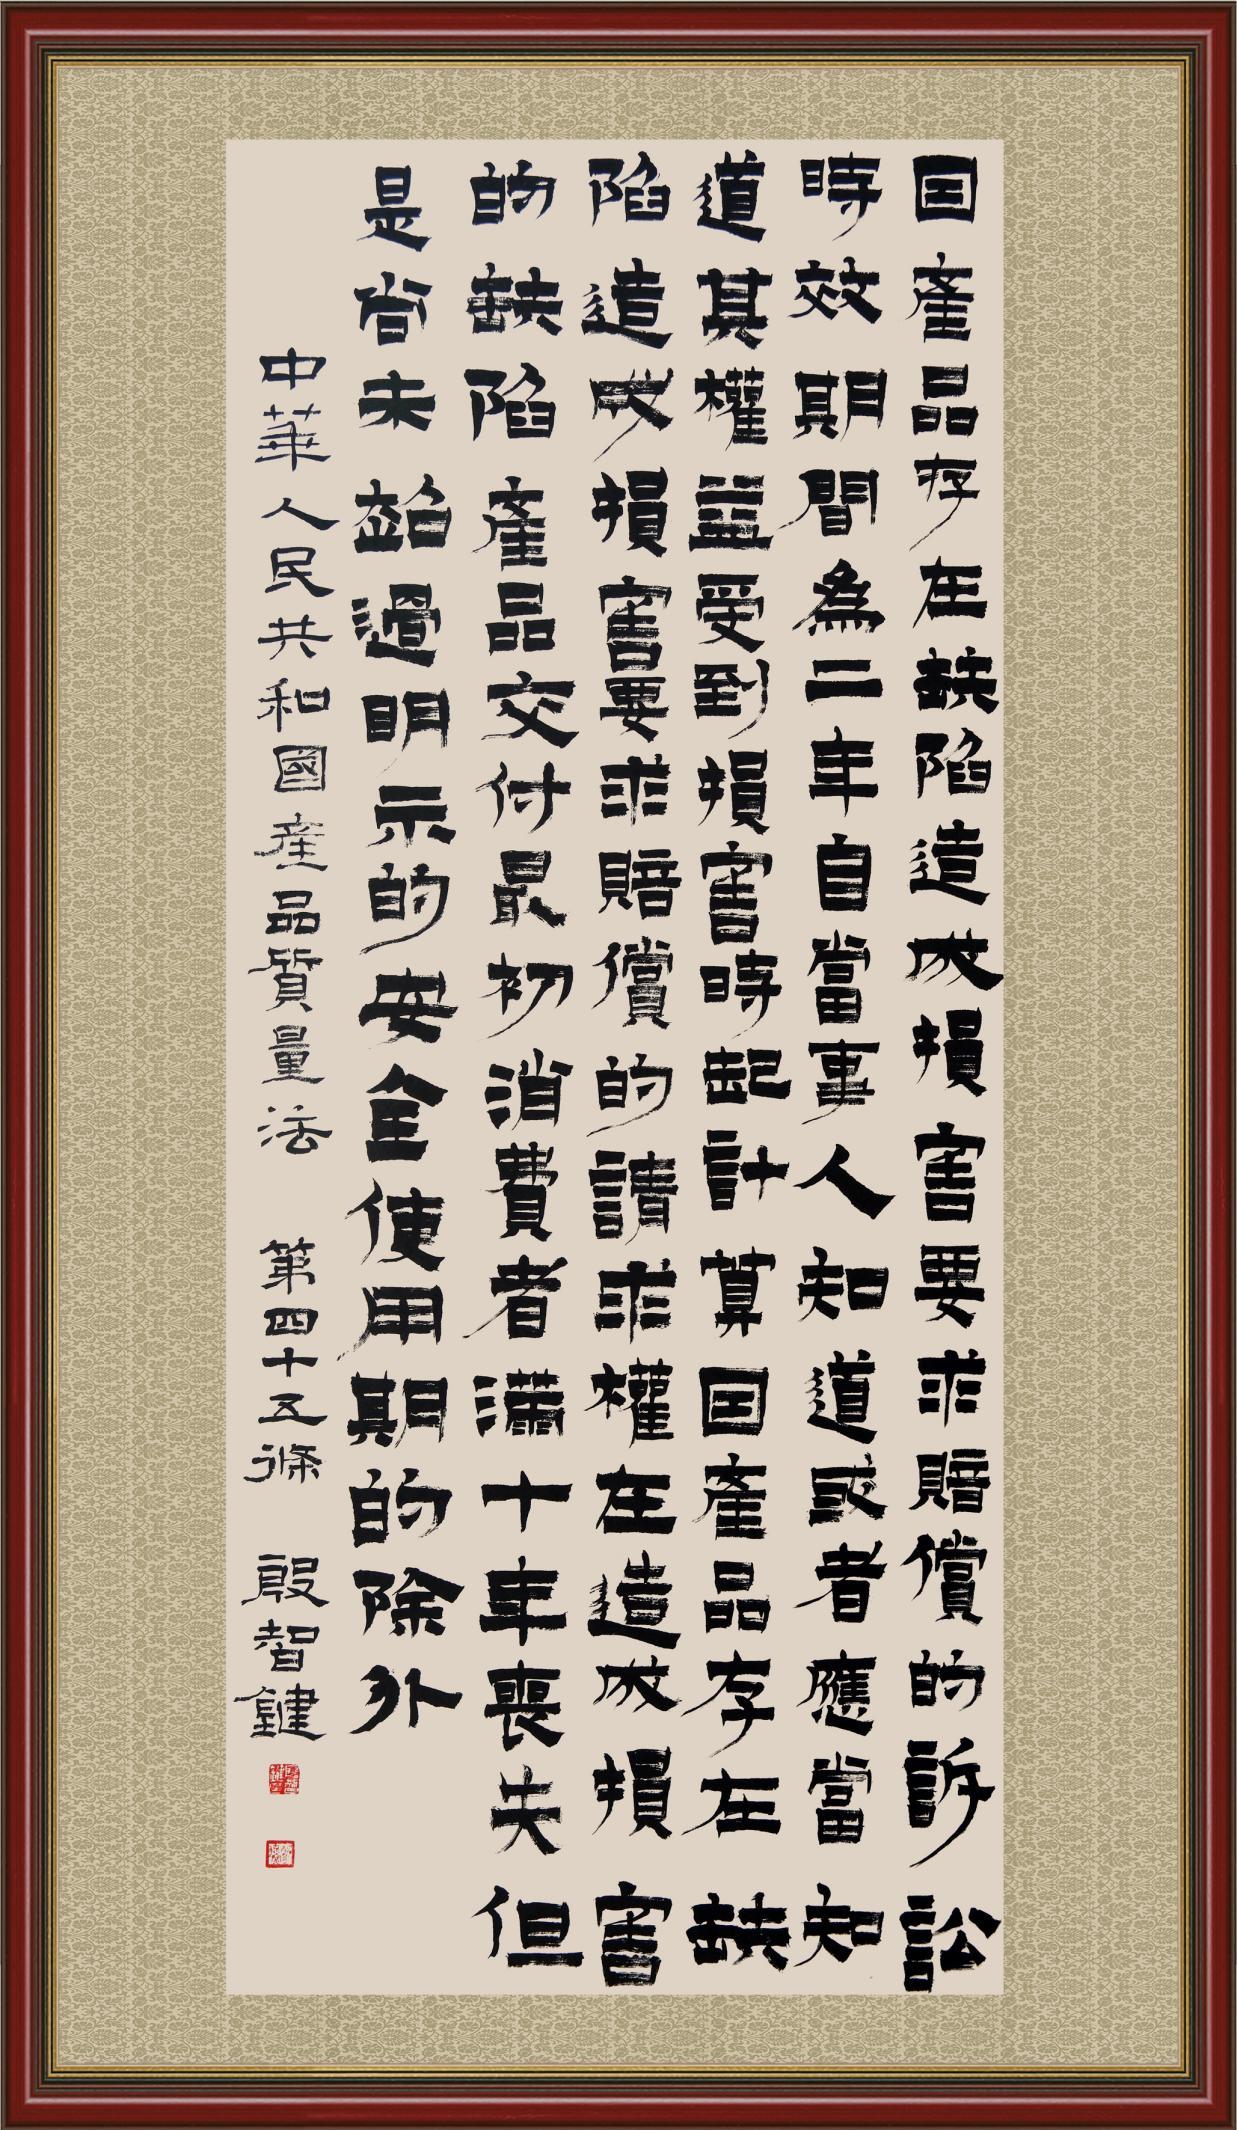 因產品存在缺陷造成損害要求賠償的訴訟
時效期間為二年自當事人知道或者應當知
道其權益受到損害時起計算因產品存在缺
陷造成損害要求賠償的請求權在造成損害
的缺陷產品交付最初消費者滿十年喪失但
是尚未超過明示的安全使用期的除外
中華人民共和國產品質量法 第四十五條 殷智鍵